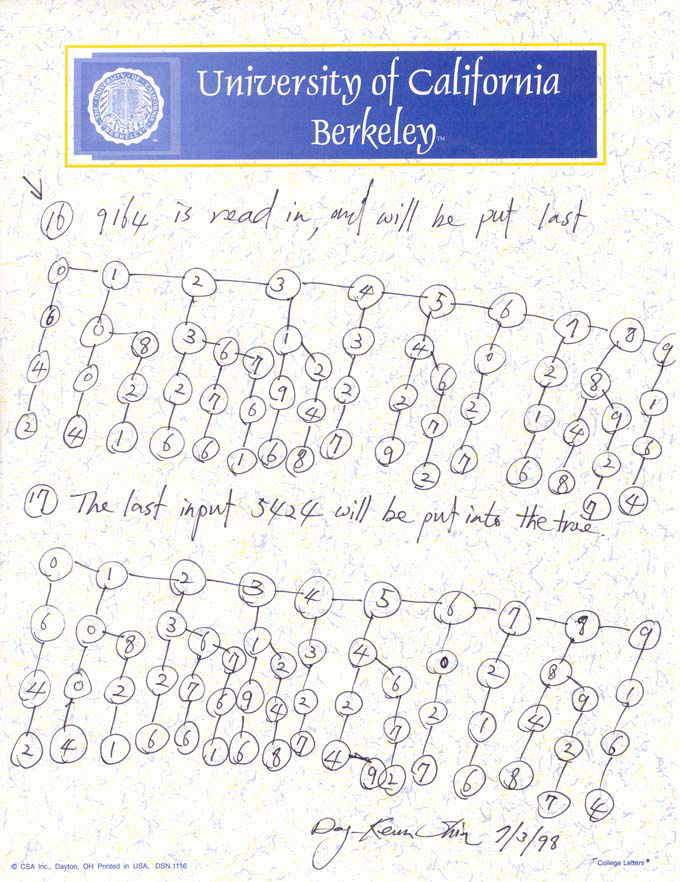 University of California
Berkeley™
16 9164 is read in, and will be put last
0 1 2 3 4 5 6 7 8 9
6 0 8 3 6 7 1 2 3 4 6 0 2 8 9 1
4 0 2 2 7 6 9 4 2 2 7 2 1 4 2 6
2 4 1 6 6 1 6 8 7 9 2 7 6 8 7 4
17 The last input 5424 will be put into the tree.
0 1 2 3 4 5 6 7 8 9
6 0 8 3 6 7 1 2 3 4 6 0 2 8 9 1
4 0 2 2 7 6 9 4 2 2 7 2 1 4 2 6
2 4 1 6 6 1 6 8 7 4 9 2 7 6 8 7 4
7/3/98
© CSA Inc., Dayton, OH Printed in USA, DSN.1116
College Letters®